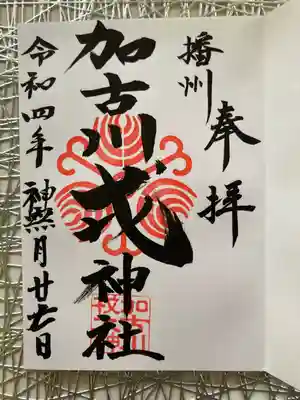 奉拝
播州
加古川戎神社
令和四年 神無月廿日
加古川